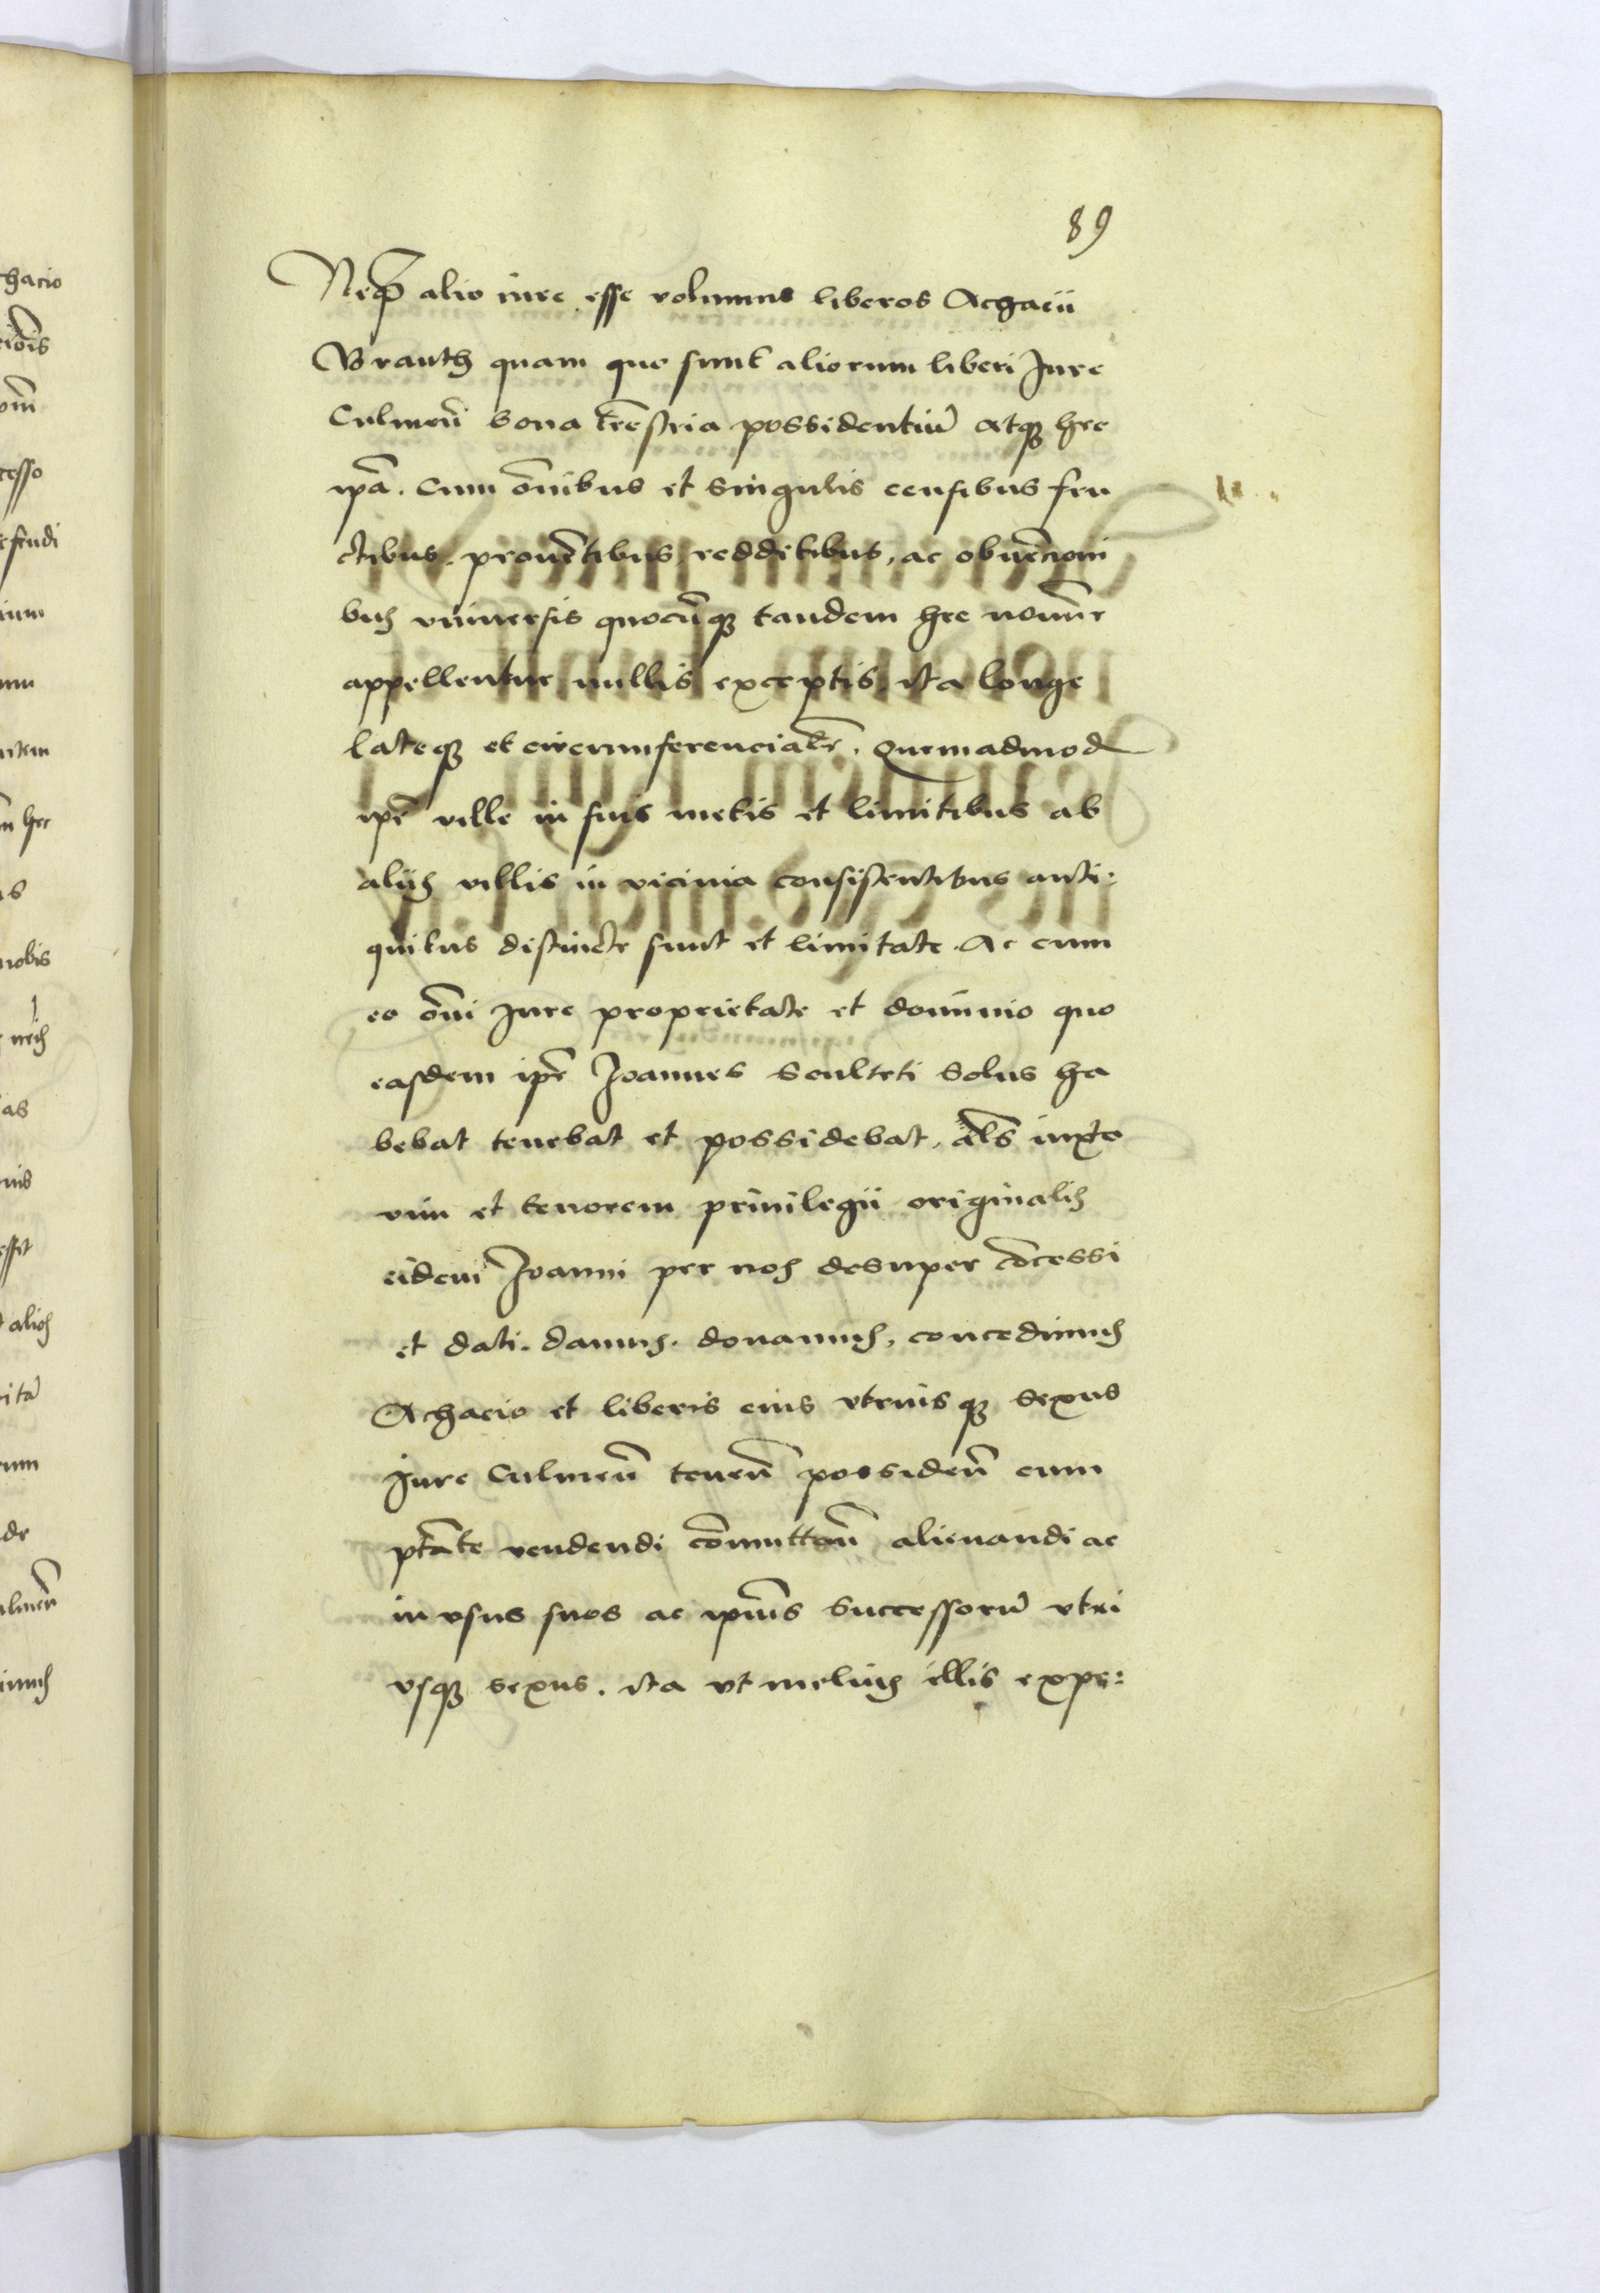 89
Neqȝ alio iure esse volumus liberos Achacii
Branth quam que sunt aliorum liberi Jure
Culmeñ bona tr̄estria possidentiū atqȝ hec
ip̄a. Cum om̄ibus et singulis censibus fru
ctibus, prouētibus redditibus, ac obuēcioni
bus vniuersis quocūqȝ tandem hec nomīe
appellentur nullis exceptis, ita longe
lateqȝ et circumferencialr̄, Quemadmod
ip̄e ville in suis metis et limitibus ab
aliis villis in vicinia consistentibus anti:
quitus distincte sunt et limitate. Ac cum
eo om̄i Jure proprietate et dominio quo
easdem ip̄e Joannes Sculteti Solus ha
bebat tenebat et possidebat, al̄s iuxta
vim et tenorem priuilegii originalis
eidem Joanni per nos desuper cōcessi
et dati. damus. donamus, concedimus
Achacio et liberis eius vtriusqȝ sexus
Jure Culmeñ teneñ possideñ cum
ptāte vendendi cōmuttañ alienandi ac
in vsus suos ac ip̄ius Successorū vtri
vsqȝ sexus. ita vt melius illis expe:
hacio
cesso
fendi
ium
ntem
hec
nobis
as
esset
alios
rum
de